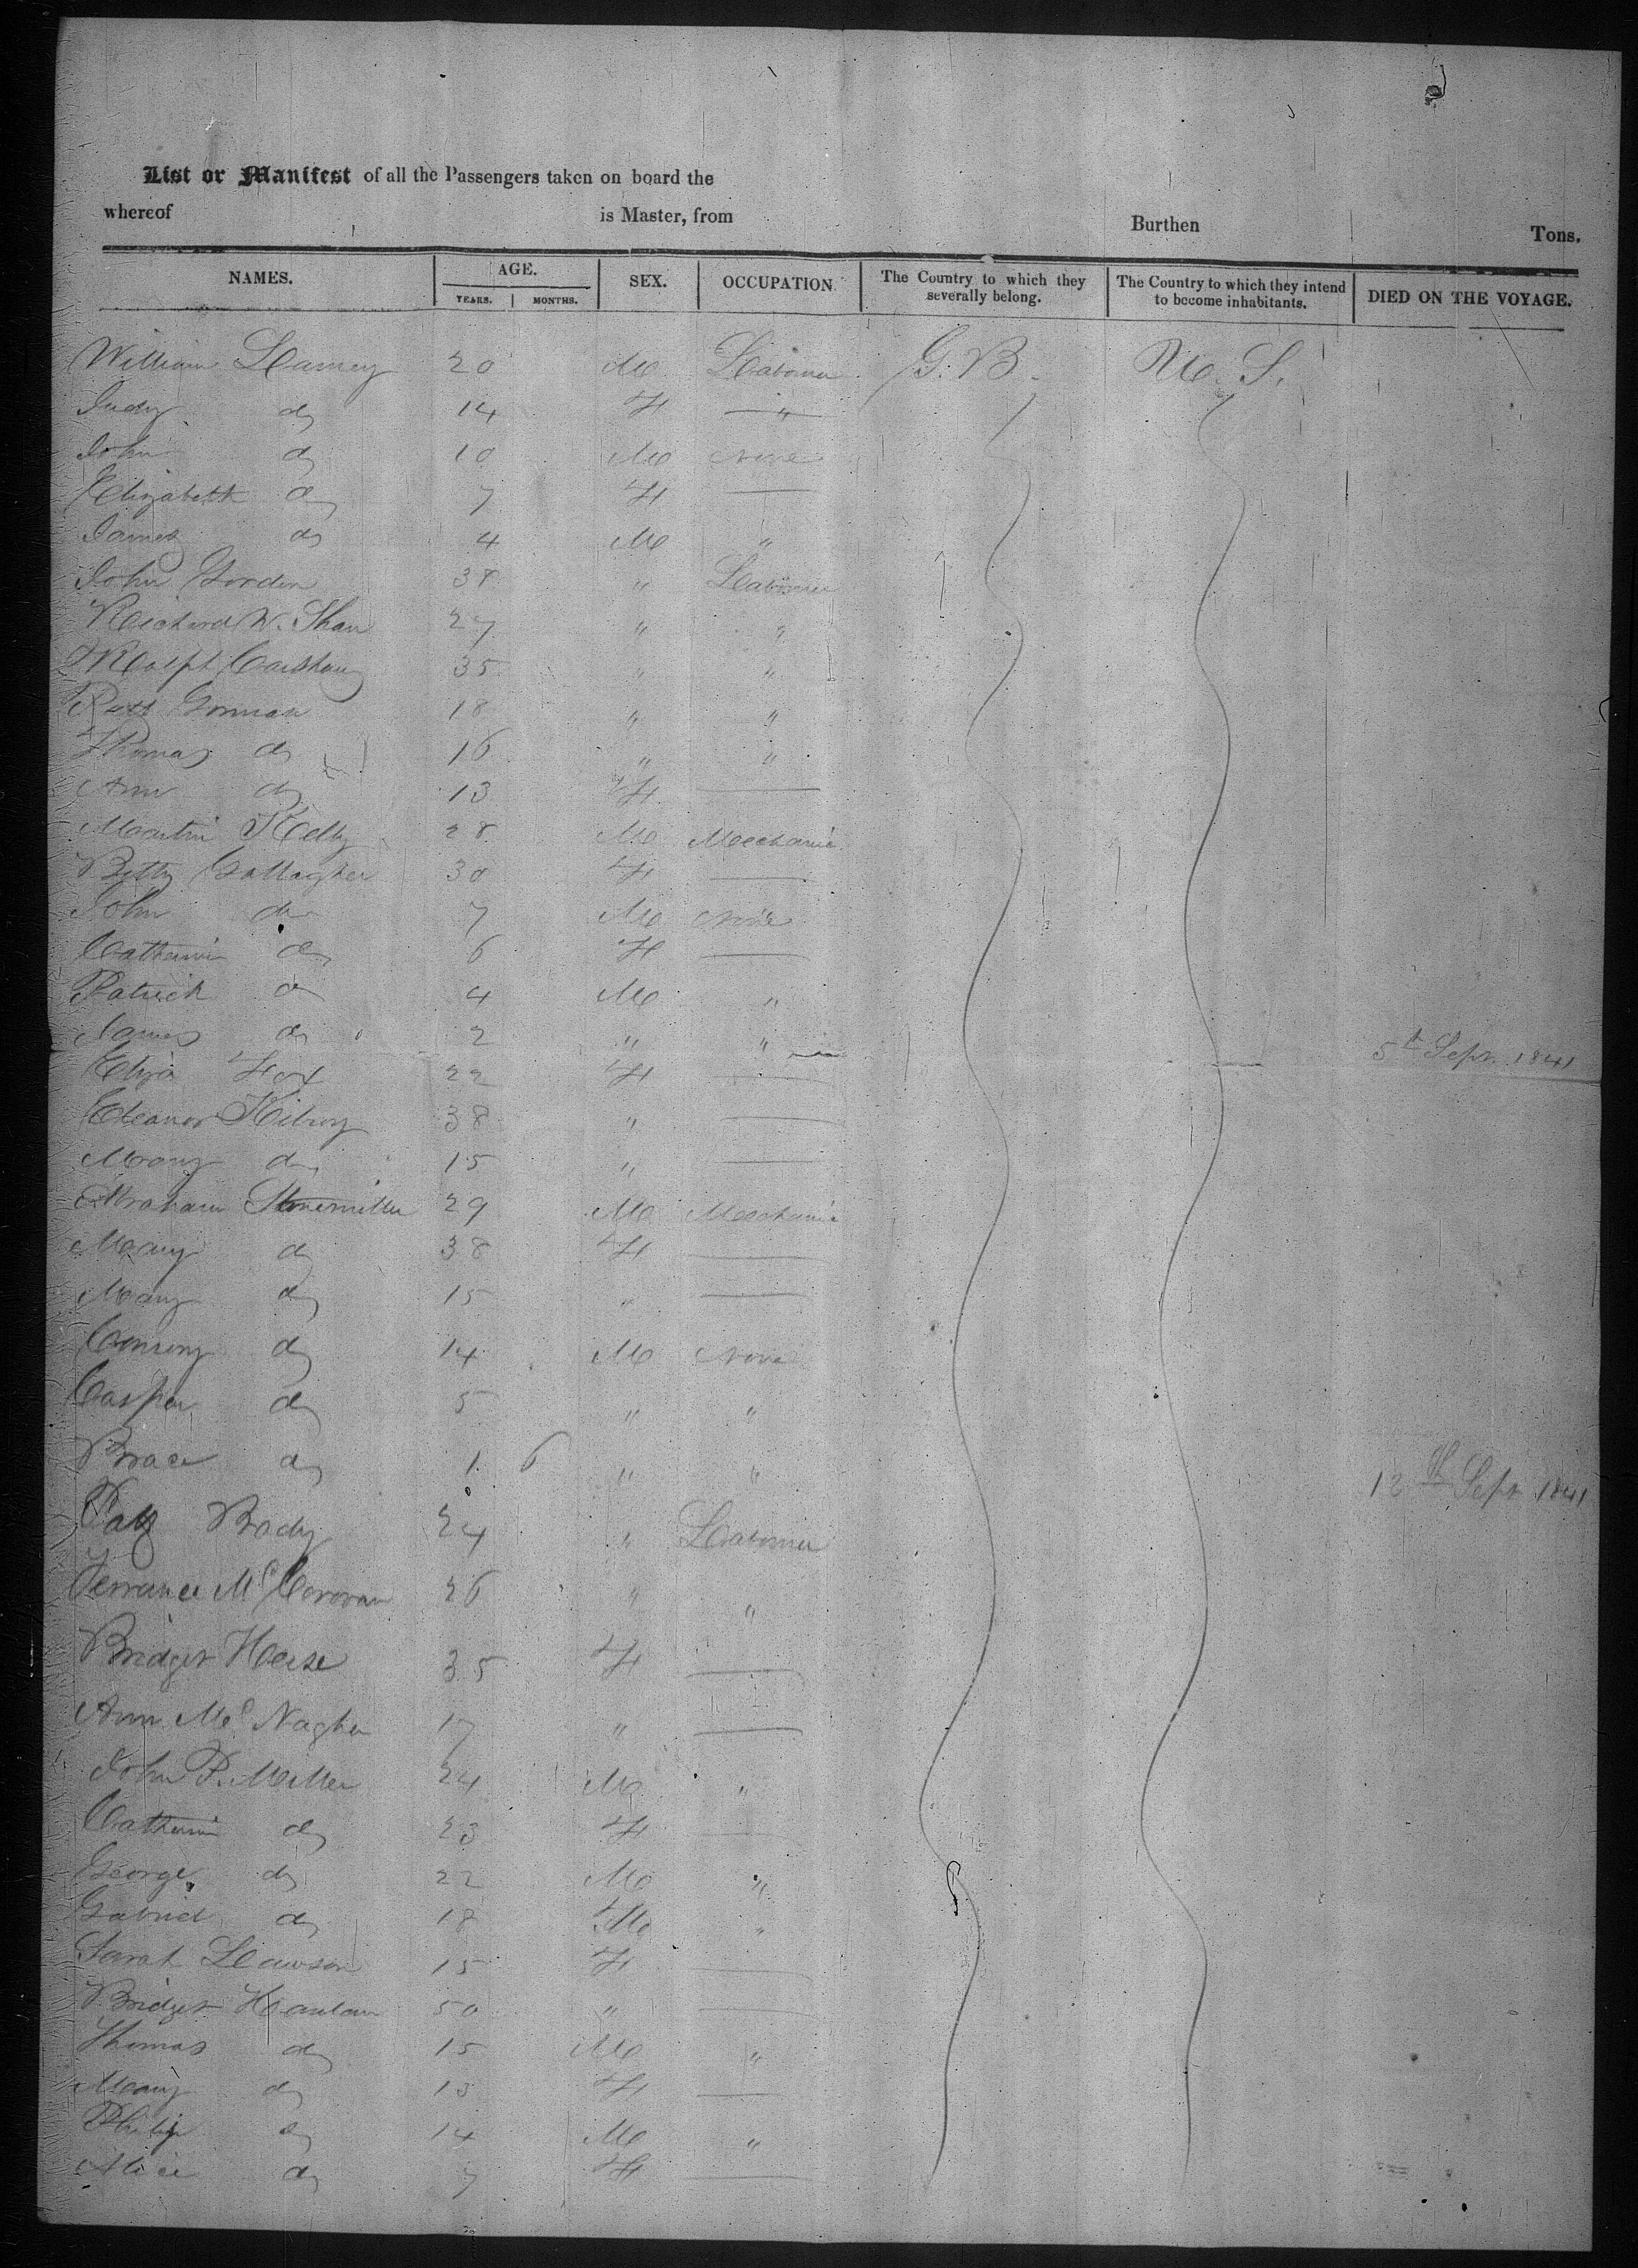 List or Manifest of all the Passengers taken on board the
whereof is Master, from Burthen Tons.
NAMES. AGE. YEARS. MONTHS. SEX. OCCUPATION The Country to which they severally belong. The Country to which they intend to become inhabitants. DIED ON THE VOYAGE.
William 20 M Laborer G. B. U. S.
Judy do 14 F "
John do 10 M None
Elizabeth do 7 F
James do 4 M "
John Gorden 38 " Laborer
Richard W. Shaw 27 " "
Ralph 35 " "
Gorman 18 " "
Thomas do 16 " "
Ann do 13 F
Martin Kelly 28 M Mechanic
Betty Gallagher 30 F
John do 7 M None
Catharine do 6 F
Patrick do 4 M "
James do 2 " " 5th Sepr. 1841
Eliza Fox 22 F
Eleanor Kilroy 38 "
Mary do 15 "
Abraham 29 M Mechanic
Mary do 38 F
Mary do 15 "
do 14 M None
Casper do 5 " "
do 1 6 " " 12th Sepr 1841
Pat Brady 24 " Laborer
Terrance Mc 26 " "
Bridget 35 F
Ann Mc Nagher 17 "
John P. Miller 24 M "
Catharine do 23 F
George do 22 M "
Gabriel do 18 M "
Sarah Lawson 15 F
Bridget Hanlan 50 "
Thomas do 15 M "
Mary do 13 F
Philip do 14 M "
Alice do 7 F